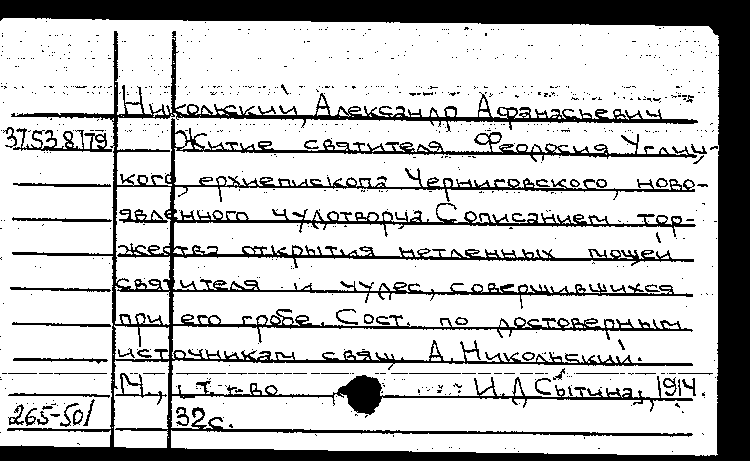 Никольский, Александр Афанасьевич
37.53 8179 Житие святителя Феодосия Углиц-
кого, архиепископа Черниговского, ново-
явленного чудотворца. С описанием тор-
жества открытия нетленных мощей
святителя и чудес, совершившихся
при его гробе. Сост. по достоверным
источникам свящ. А. Никольский.
М., т-во И. Д. Сытина, 1914.
265-501 32с.